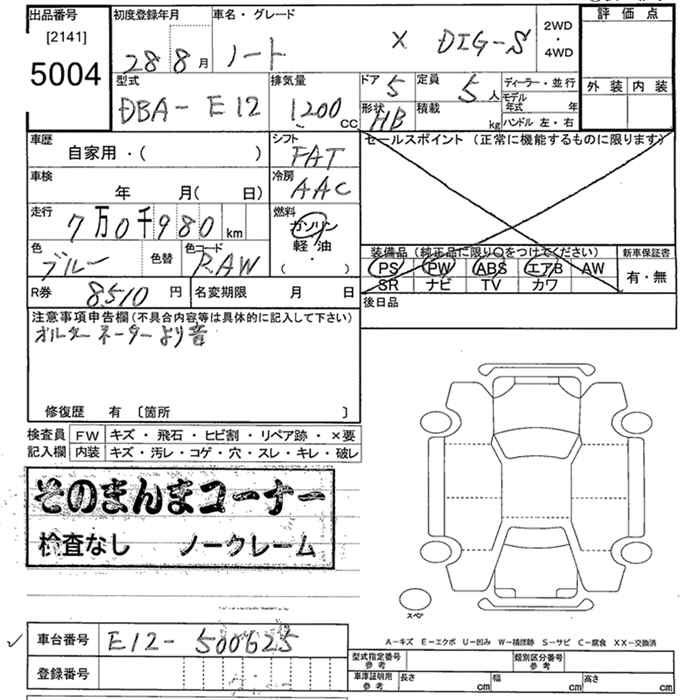 出品番号
[2141]
5004
初度登録年月
28 8 月
車名・グレード
ノート X DIG-S
2WD
・
4WD
評価点
外装 内装
型式
DBA-E12
排気量
1200 CC
ドア 5
形状 HB
定員 5 人
積載 kg
ディーラー・並行
モデル年式 年
ハンドル 左・右
車歴
自家用・( )
シフト
FAT
セールスポイント (正常に機能するものに限ります)
車検
年 月( 日)
冷房
AAC
走行
7万0千980 km
燃料
ガソリン
軽油
( ・ )
色
ブルー
色替
色コード
RAW
装備品 (純正品に限り○をつけてください)
PS PW ABS エアB AW
SR ナビ TV カワ
新車保証書
有・無
R券 8510 円
名変期限 月 日
後日品
注意事項申告欄 (不具合内容等は具体的に記入して下さい)
オルターネーターより音
修復歴 有 〔箇所 〕
検査員 FW キズ・飛石・ヒビ割・リペア跡・×要
記入欄 内装 キズ・汚レ・コゲ・穴・スレ・キレ・破レ
そのまんまコーナー
検査なし ノークレーム
スペア
A-キズ E-エクボ U-凹み W-補修跡 S-サビ C-腐食 XX-交換済
車台番号 E12-500625
登録番号
型式指定番号
参考
類別区分番号
参考
車庫証明用
参考
長さ cm
幅 cm
高さ cm